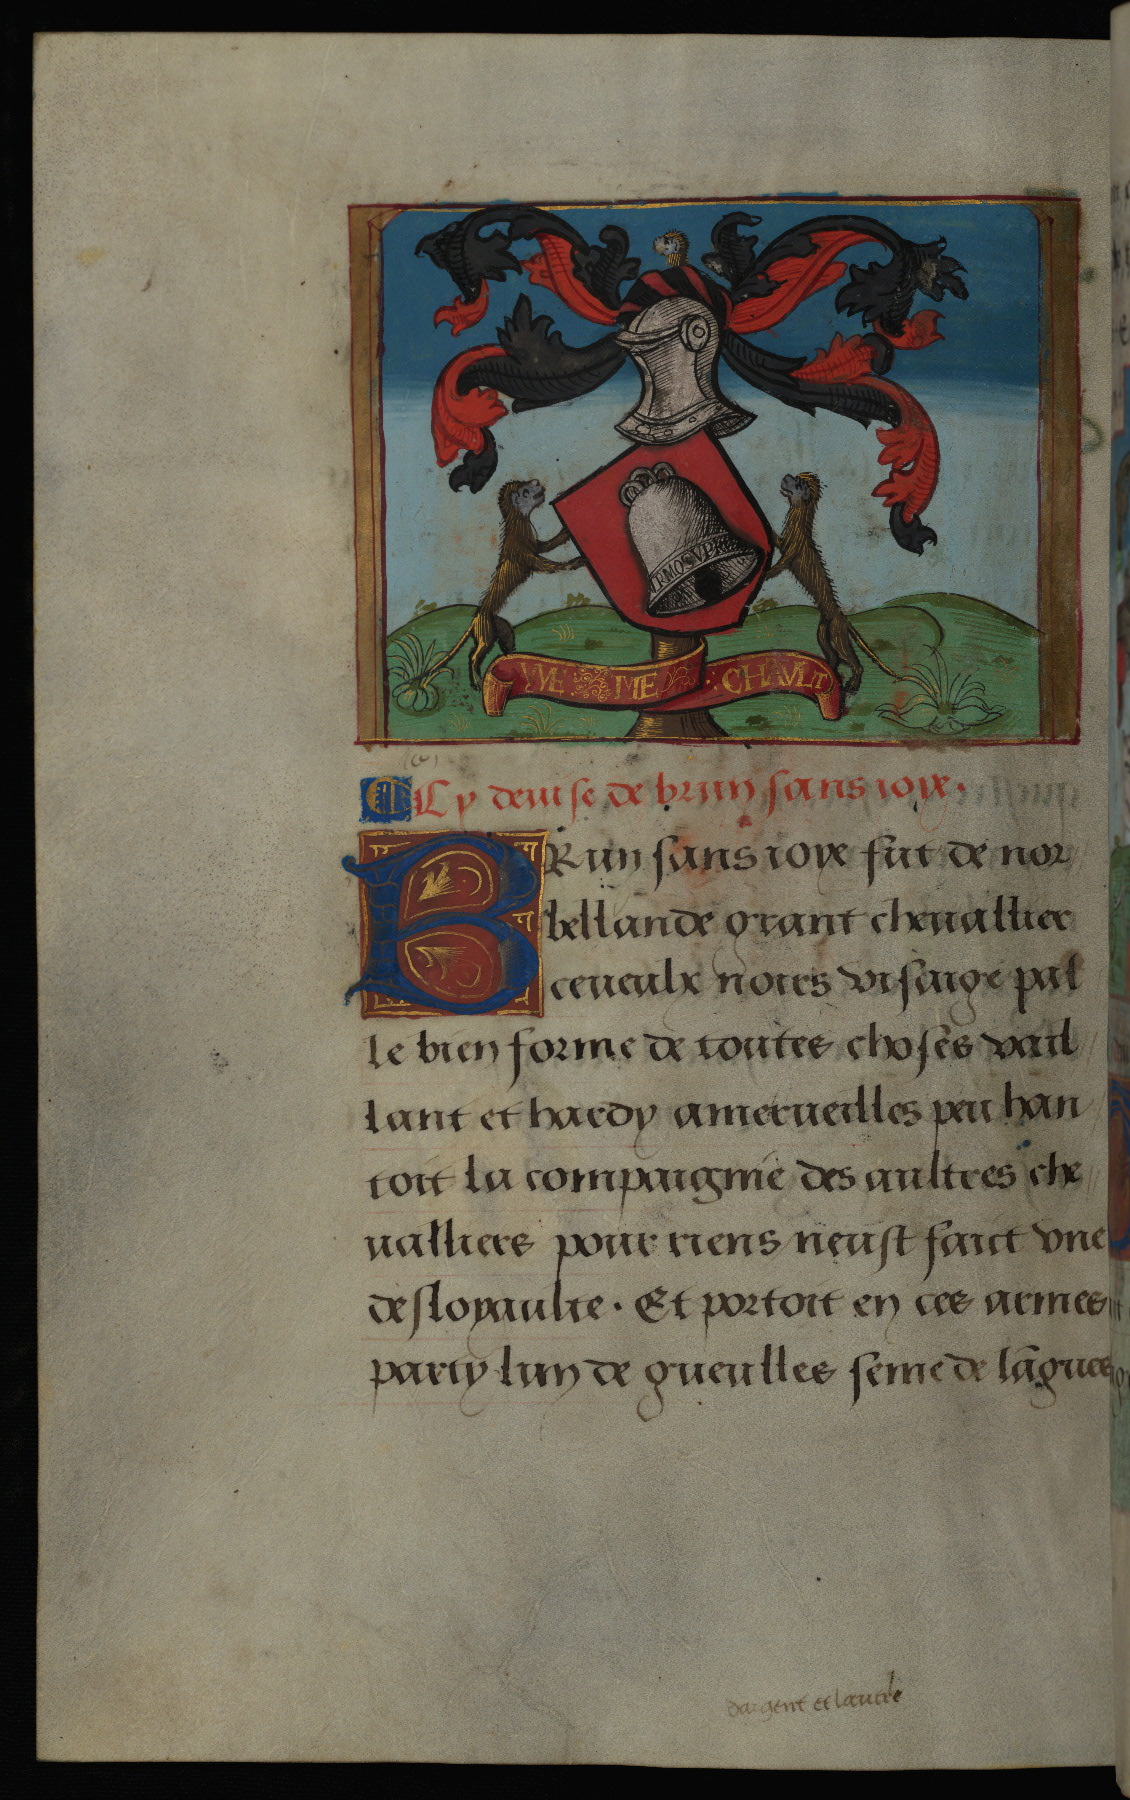 YVE ME CHAVLT
Cy deuise de brun sans ioye.
BRun sans ioye fut de nor
bellande grant cheuallier
ceueulx noirs visaige pal
le bien forme de toutes choses vail
lant et hardy amerueilles peu han
toit la compaignie des aultres che
ualliers pour riens neust faict vne
desloyaulte. Et portoit en ces armes
party lun de gueulles seme de lãgues
dargent et laultre